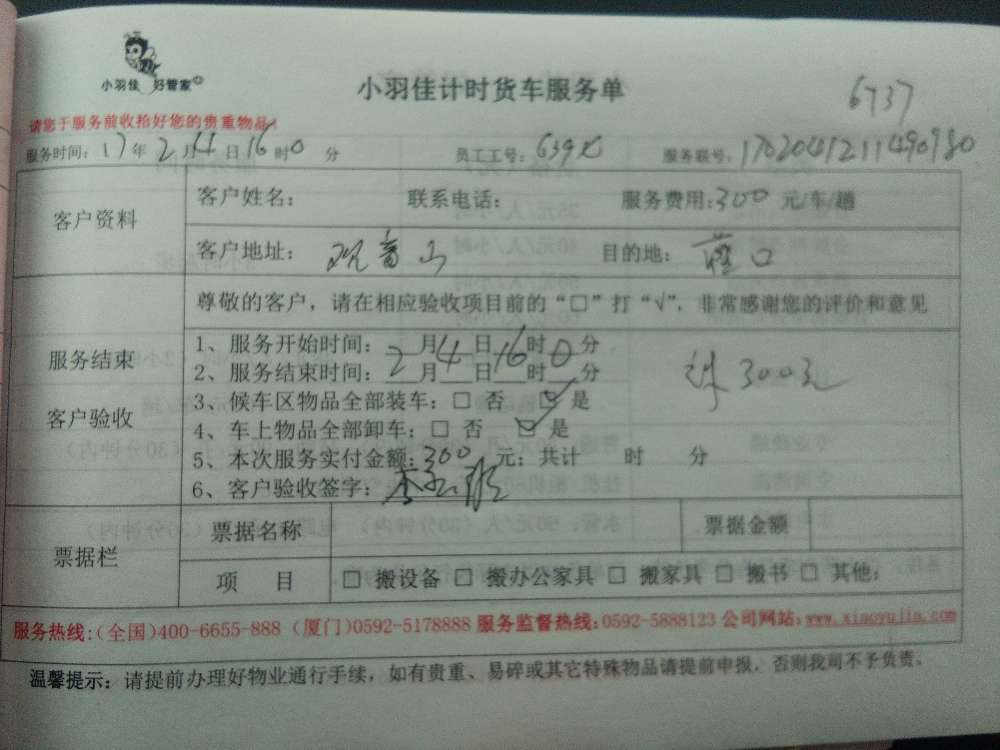 小羽佳 好管家
小羽佳计时货车服务单
6737
请您于服务前收拾好您的贵重物品！
服务时间：17年2月4日16时0分 员工工号： 服务联号：1702041211490980
客户资料
客户姓名： 联系电话： 服务费用：300 元/车/趟
客户地址：观音山 目的地：口
尊敬的客户，请在相应验收项目前的“□”打“√”，非常感谢您的评价和意见
服务结束
客户验收
1、服务开始时间：2月4日16时0分
2、服务结束时间：___月___日___时___分
3、候车区物品全部装车：□ 否 ☑ 是
4、车上物品全部卸车：□ 否 ☑ 是
5、本次服务实付金额：300 元；共计 时 分
6、客户验收签字：
300元
票据栏
票据名称 票据金额
项 目 □ 搬设备 □ 搬办公家具 □ 搬家具 □ 搬书 □ 其他：
服务热线:(全国)400-6655-888 (厦门)0592-5178888 服务监督热线:0592-5888123 公司网站:www.xiaoyujia.com
温馨提示：请提前办理好物业通行手续，如有贵重、易碎或其它特殊物品请提前申报，否则我司不予负责。